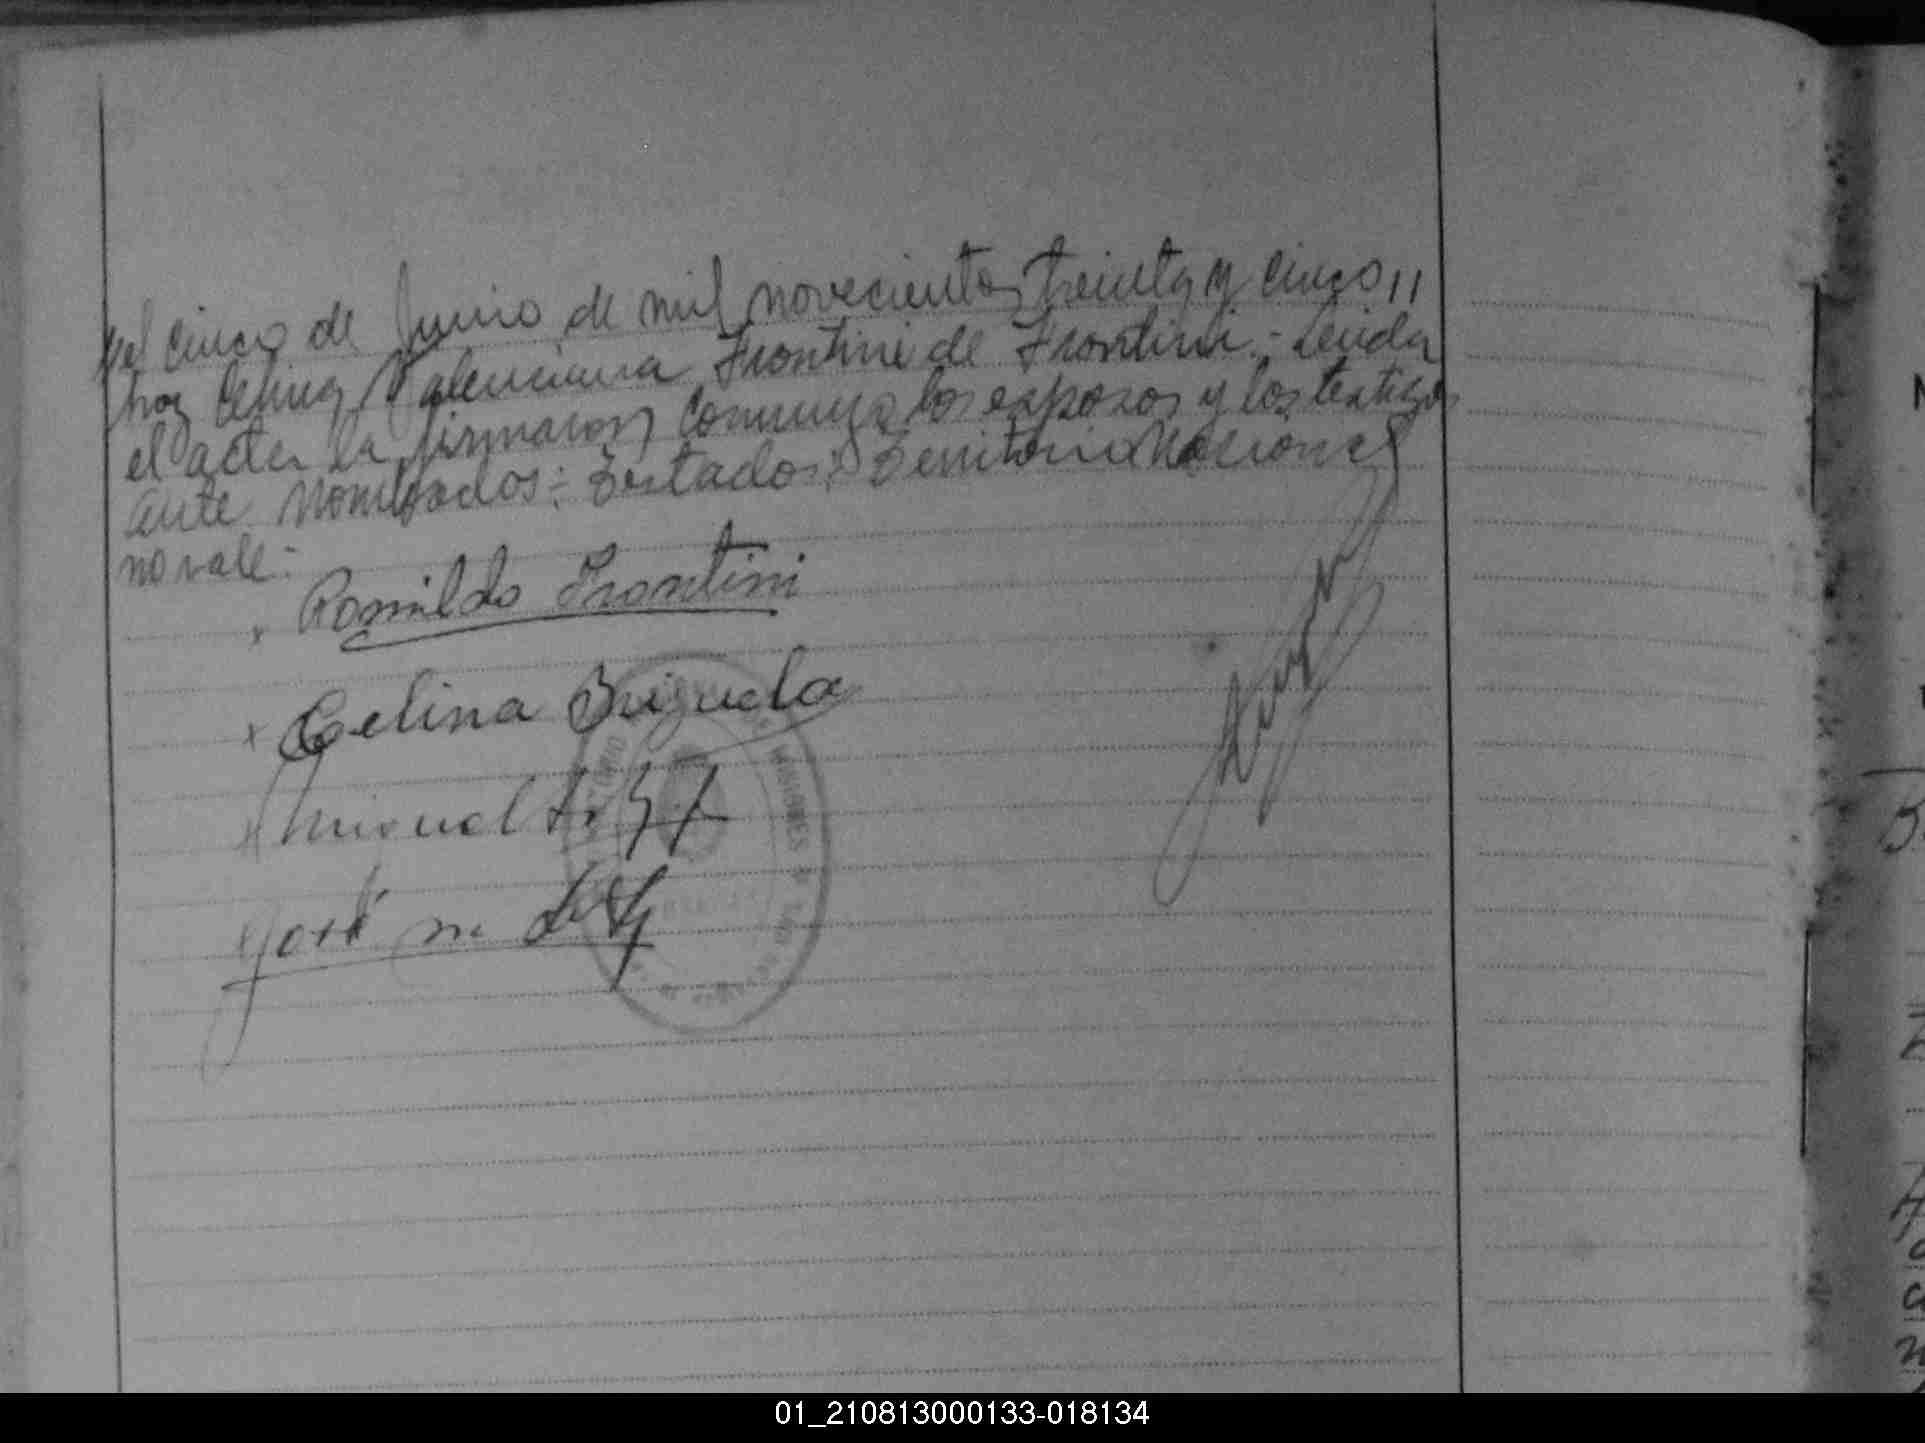 el cinco de Junio de mil novecientos treinta y cinco,,
hoy Celina Valenciana Frontini de Frontini.- Leida
el acta la firmaron conmigo los esposos y los testigos
ante nombrados:- Testados: Territorio Nacional
no vale:-
x Romildo Frontini
x Celina Brizuela
Miguel
José M.
01_210813000133-018134